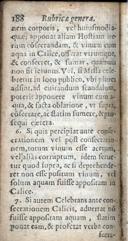 188 Rubricæ genera.
tem corporis, vel hujusmodi
quæ) apponat aliam Hostiam
rum obsecrandam, & vinum cum
aqua in Calice, offerat utrumque,
& consecret, & sumat, quamvis
non sit jejunus. Vel si Missa cele-
bretur in loco publico, ubi plures
assint, ad evitandum scandalum,
poterit apponere vinum cum a-
qua, & facta oblatione, ut supra,
consecrare, ac statim sumere, &
sequi cetera.
6. Si quis percipiat ante conse-
crationem vel post consecratio-
nem, totum vinum esse acetum,
vel alias corruptum, idem serve-
tur quod supra, ac si deprehende-
ret non esse positum vinum, vel
solam aquam fuisse appositam in
Calice.
7. Si autem Celebrans ante con-
secrationem Calicis, adverterit non
fuisse appositam aquam, statim
ponat eam, & proferat verba con-
secra-